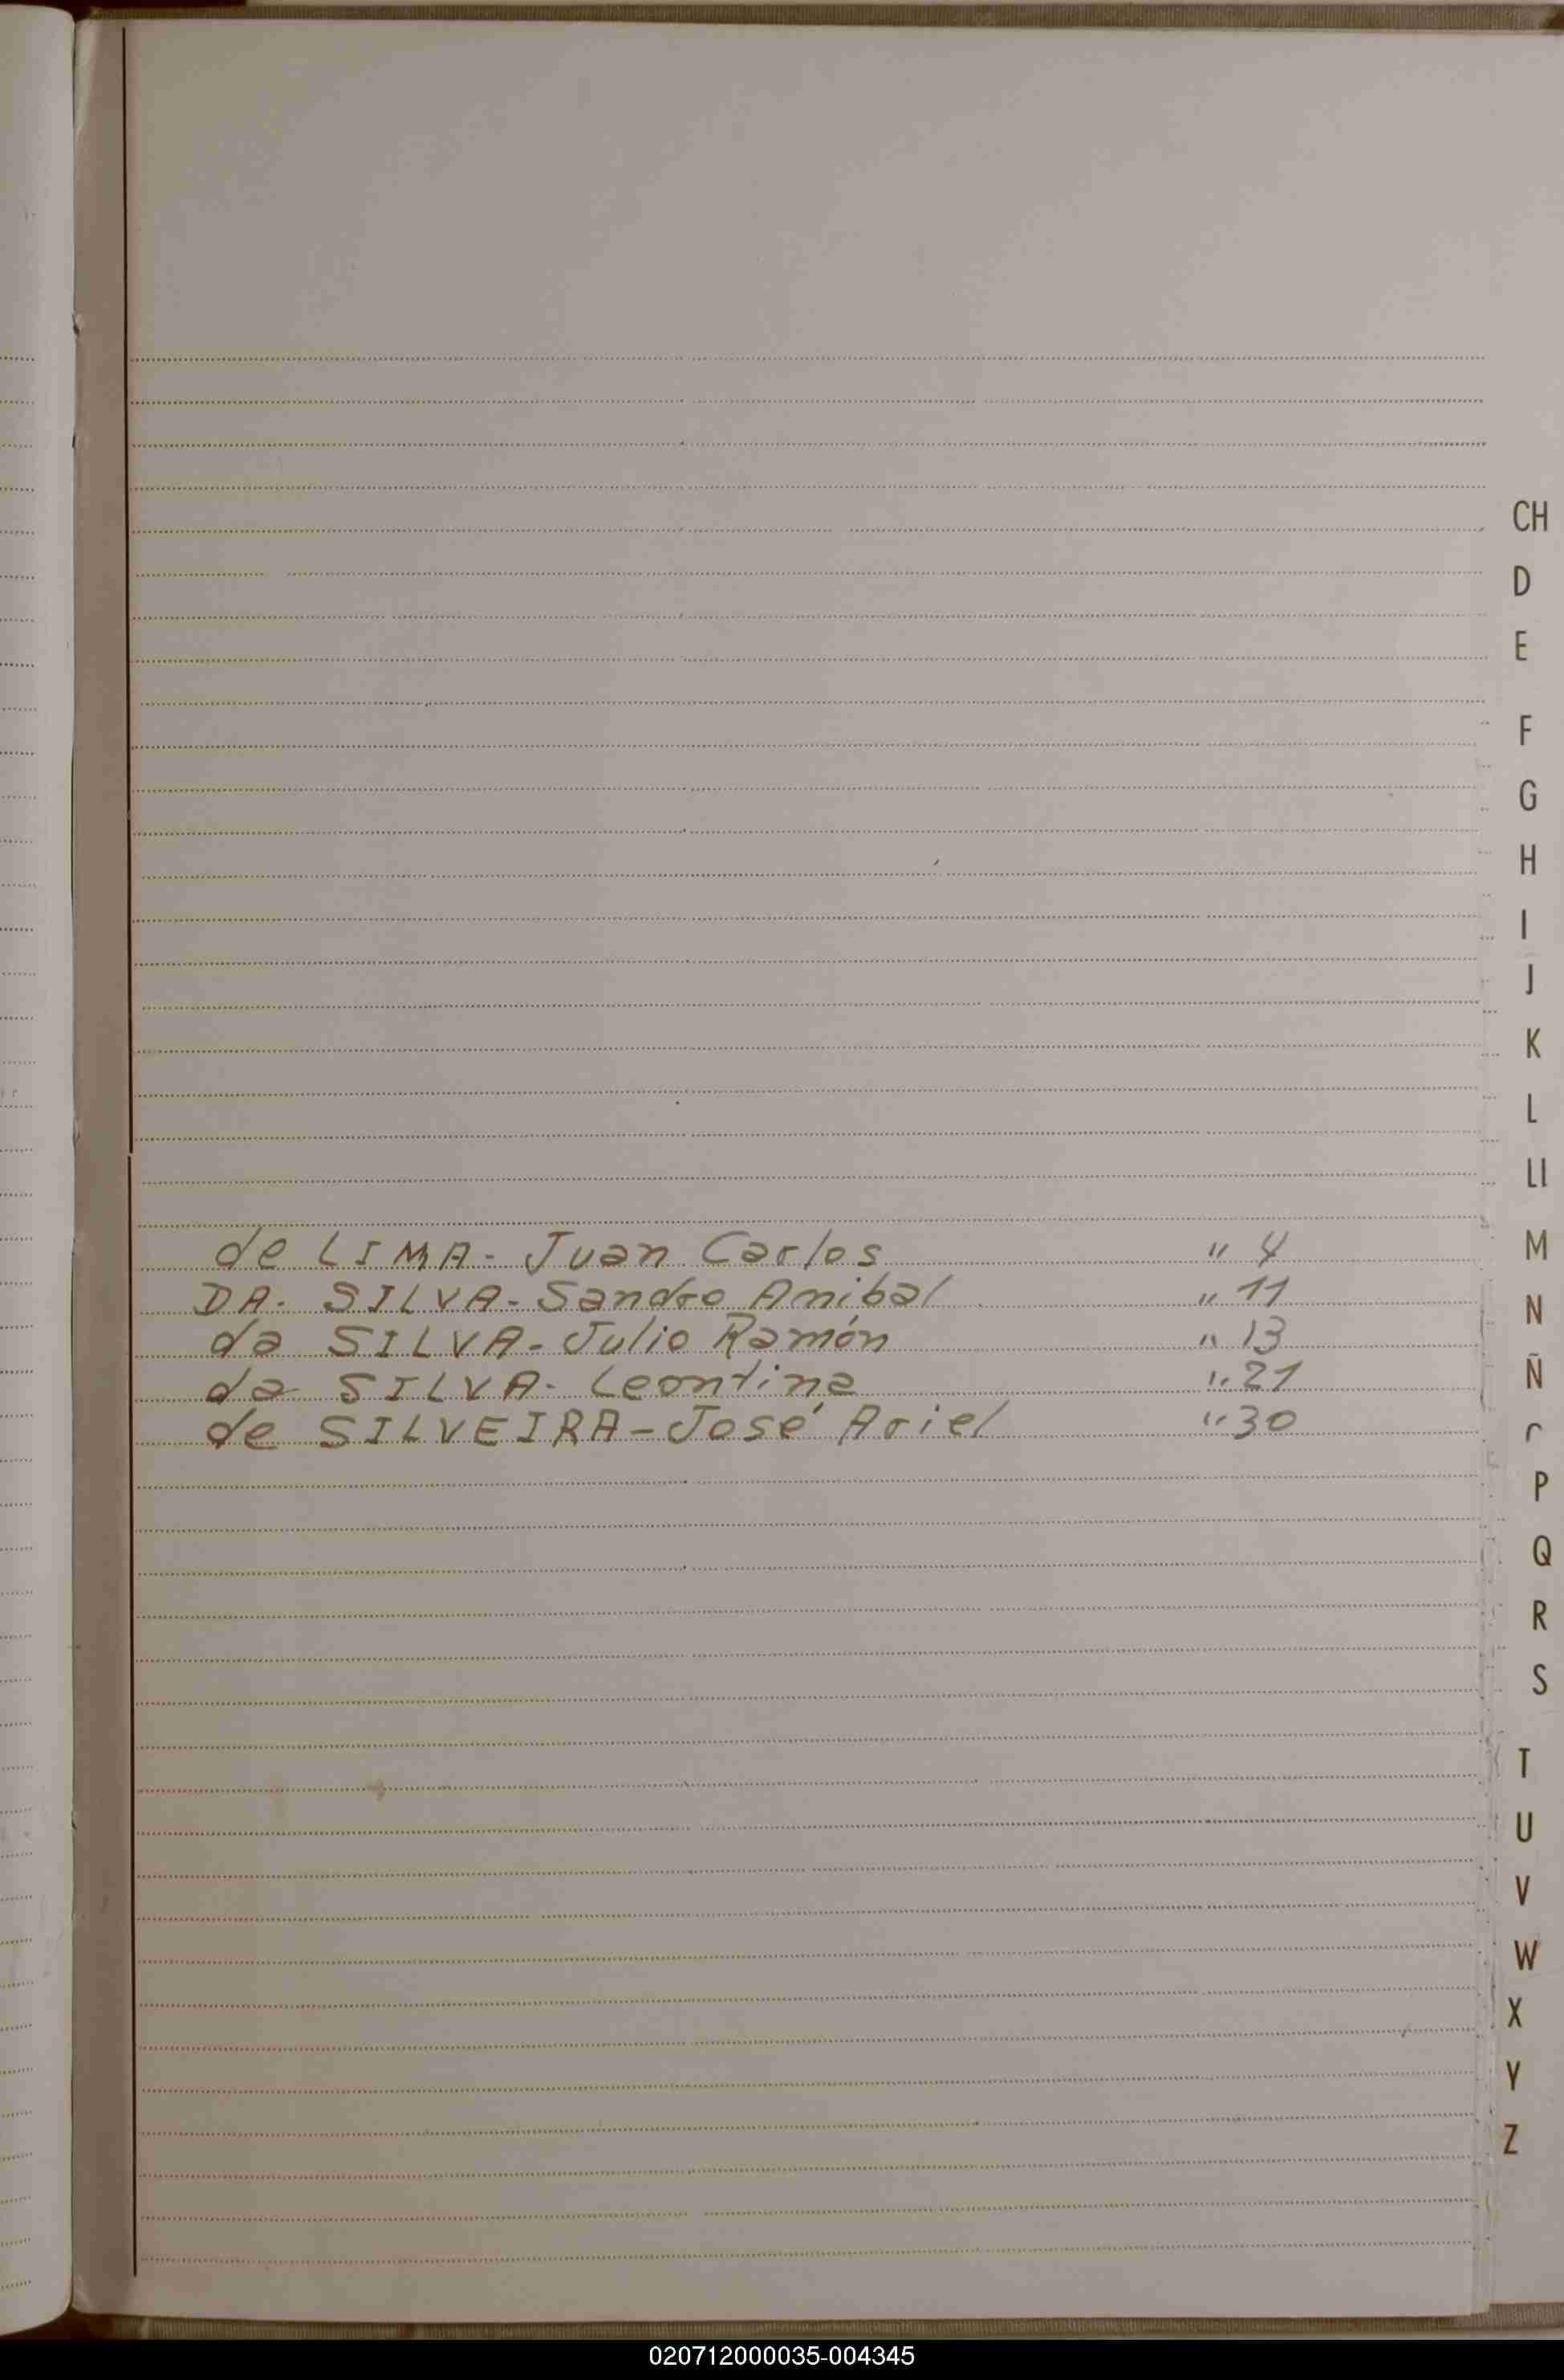 CH
D
E
F
G
H
I
J
K
L
Ll
de LIMA - Juan Carlos " 4
M
DA. SILVA - Sandro Anibal " 11
N
da SILVA - Julio Ramón " 13
da SILVA - Leontina " 21
Ñ
de SILVEIRA - José Ariel " 30
P
Q
R
S
T
U
V
W
X
Y
Z
020712000035-004345